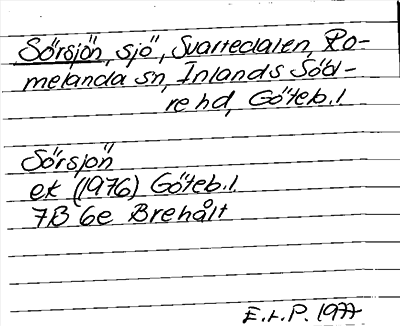 Sörsjön, sjö, Svartedalen, Ro-
melanda sn, Inlands Söd-
re hd, Göteb. l
Sörsjön
ek (1976) Göteb. l.
7B 6e Brehålt
E.L.P. 1977